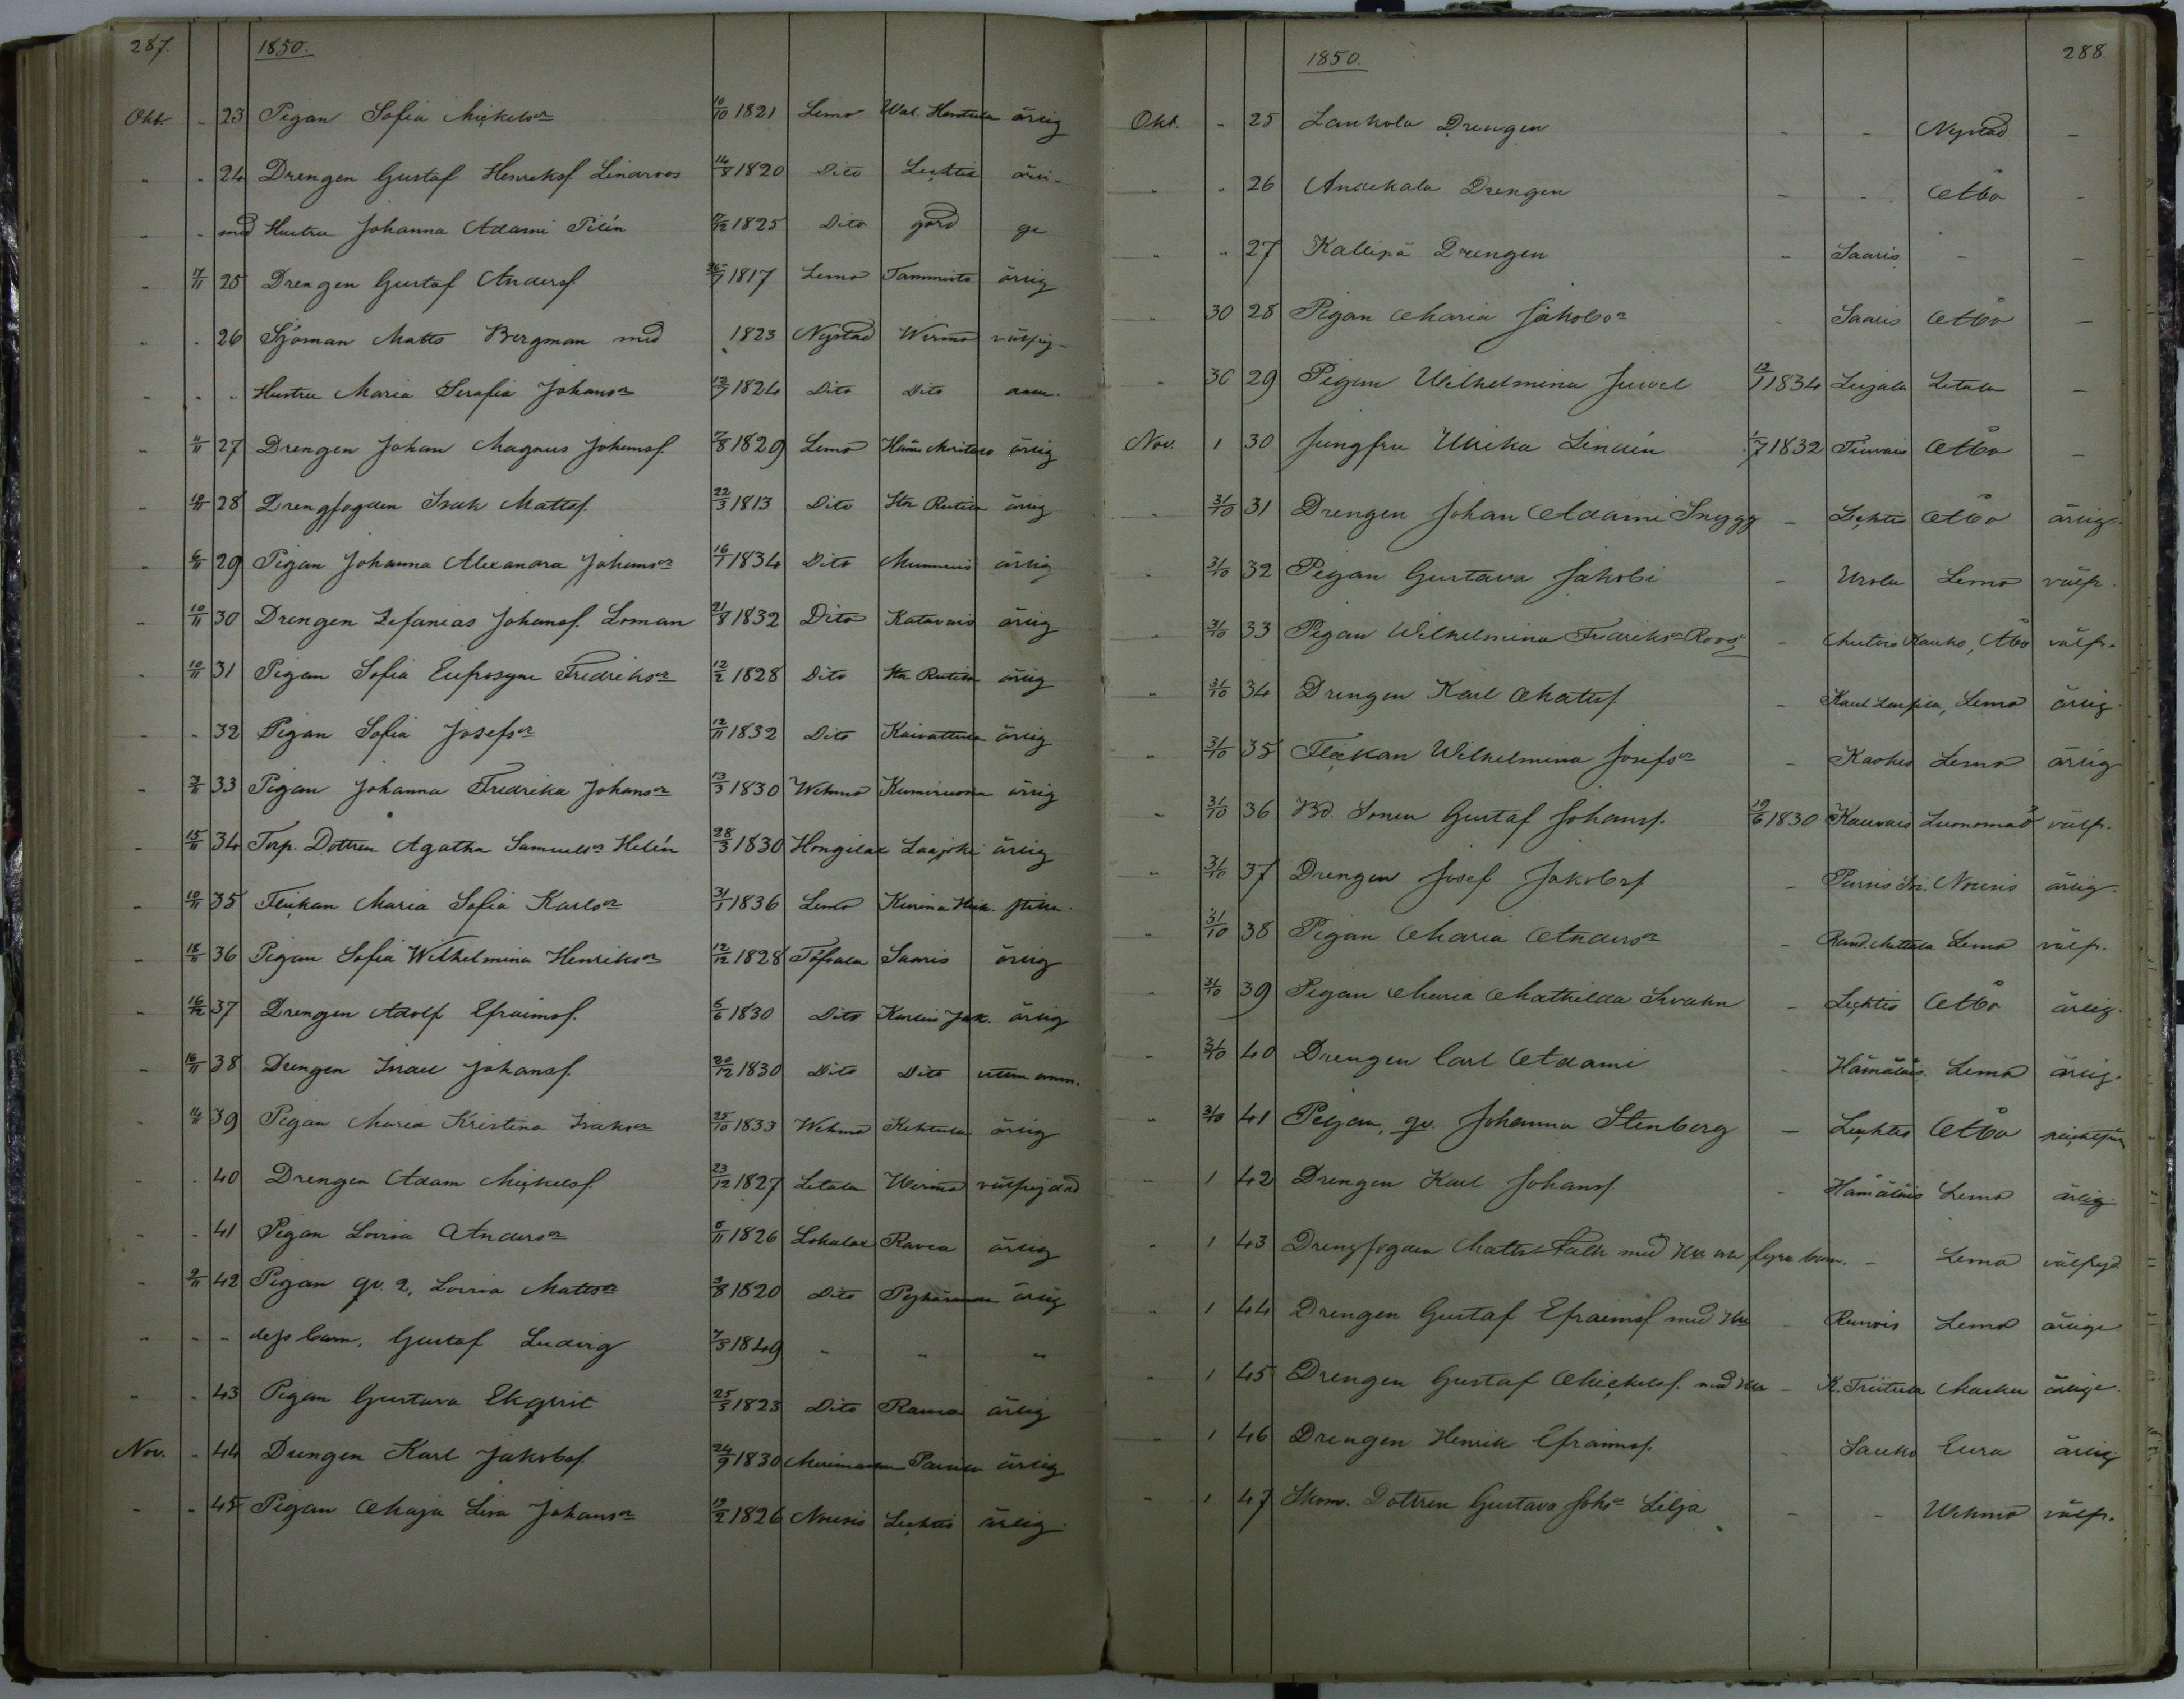 287.
1850.
Okt. - 23 Pigan Sofia Mickelsr 10/10 1821 Lemo Wal. ärlig
- - 24 Drengen Gustaf Henriksf. Lindroos 14/8 1820 Dito Lechtis ärli-
- - med Hustru Johanna Adami Pilén 1825 Dito gård ge
- 17/11 25 Drengen Gustaf Andersf. 26/7 1817 Lemo Tammisto ärlig
- - 26 Sjöman Matts Bergman med 1823 Nystad Wirmo välfrej-
- - - Hustru Maria Serafia Johansr 12/7 1824 Dito Dito
- 11/11 27 Drengen Johan Magnus Johansf. 7/8 1829 Lemo ärlig
- 10/11 28 Drengfogden Isak Mattsf. 22/3 1813 Dito ärlig
- 6/11 29 Pigan Johanna Alexandra Johansr 16/1 1834 Dito Mummis ärlig
- 10/11 30 Drengen Zefanias Johansf. Loman 21/8 1832 Dito Katavais ärlig
- 10/11 31 Pigan Sofia Eufrosyne Fredriksr 12/2 1828 Dito ärlig
- - 32 Pigan Sofia Josefsr 12/11 1832 Dito Kaivattula ärlig
- 7/11 33 Pigan Johanna Fredrika Johansr 13/3 1830 Wehmo ärlig
- 15/11 34 Torp. Dottren Agatha Samuelsr Helén 28/3 1830 Hongilax Laajoki ärlig
- 10/11 35 Flickan Maria Sofia Karlsr 31/1 1836 Lemo
- 18/11 36 Pigan Sofia Wilhelmina Henriksr 12/12 1828 Töfsala Saaris ärlig
- 16/12 37 Drengen Adolf Efraimsf. 5/6 1830 Dito ärlig
- 16/11 38 Drengen Israel Johansf. 20/12 1830 Dito Dito utan anm.
- 14/11 39 Pigan Maria Kristina Isaksr 25/10 1833 Wehmo ärlig
- - 40 Drengen Adam Mickelsf. 23/12 1827 Letala Wirmo välfrejdad
- - 41 Pigan Lovisa Andersr 5/11 1826 Lokalax ärlig
- 9/11 42 Pigan qv. 2, Lovisa Mattsr 3/8 1820 Dito ärlig
- - - dess barn, Gustaf Ludvig 7/3 1849 - - -
- - 43 Pigan Gustava Ekqvist 25/3 1823 Dito ärlig
Nov. - 44 Drengen Karl Jakobsf. 24/9 1830 ärlig
- - 45 Pigan Maja Lisa Johansr 19/2 1826 Nousis Lechtis ärlig
288.
1850.
Okt. - 25 Lankola Drengen - - Nystad -
- - 26 Andekala Drengen - - Åbo -
- - 27 Kallipä Drengen - Saaris - -
- 30 28 Pigan Maria Jakobsr - Saaris Åbo -
- 30 29 Pigan Wilhelmina Juvel 12/1 1834 Leijala Letala -
Nov. 1 30 Jungfru Ulrika Lindén 1/7 1832 Åbo -
- 31/10 31 Drengen Johan Adami Snygg - Lechtis Åbo ärlig.
- 31/10 32 Pigan Gustava Jakobi - Urola Lemo välfr.
- 31/10 33 Pigan Wilhelmina Fredriksr Roos - Kauko, Åbo välfr.
- 31/10 34 Drengen Karl Mattsf. - Lemo ärlig.
- 31/10 35 Flickan Wilhelmina Josefsr - Kaskis Lemo ärlig
- 31/10 36 Bd. Sonen Gustaf Johansf. 19/6 1830 välfr.
- 31/10 37 Drengen Josef Jakobsf - Nousis ärlig.
- 31/10 38 Pigan Maria Andersr - Lemo välfr.
- 31/10 39 Pigan Maria Mathilda Svahn - Lechtis Åbo ärlig.
- 31/10 40 Drengen Carl Adami - Hämäläis. Lemo ärlig.
- 31/10 41 Pigan, qv. Johanna Stenberg - Lechtis Åbo
- 1 42 Drengen Karl Johansf. - Hämäläis Lemo ärlig.
- 1 43 Drengfogden Matts Falk med Hu och fyra barn. - Lemo välfrejd
- 1 44 Drengen Gustaf Efraimsf med Hu - Runois Lemo ärlige
- 1 45 Drengen Gustaf Mickelsf. med Hu - Masku ärlige.
- 1 46 Drengen Henrik Efraimsf. - Sauko Eura ärlig
- 1 47 Skom. Dottren Gustava Johsr Lilja - - Wehmo välfr.